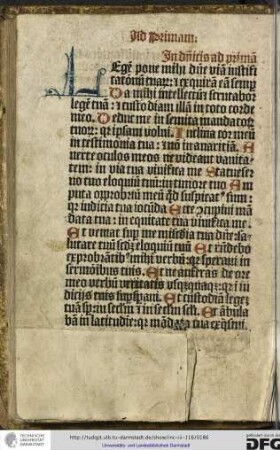 Ad Primam:
In dñicis ad primã
Legē pone mihi dñe viã iustifi
tationũ tuaꝝ: ⁊ exquirã eã semp
Da mihi intellectũ ⁊ scrutabor
legē tuã: ⁊ custodiam illã in toto corde
meo. Deduc me in semita mandatoꝝ
tuoꝝ: qꝛ ipsam volui. Inclina cor meũ
in testimonia tua: ⁊ nõ in auariciã. A
uerte oculos meos ne videant vanita
tem: in via tua viuifica me Statue ser
uo tuo eloquiũ tuũ: in timore tuo Am
puta opprobriũ meũ qd̃ suspicatꝰ sum:
qꝛ iudicia tua iocũda Ecce ↄcupiui man
data tua: in equitate tua viuifica me.
Et veniat sup me misc̃dia tua dñe: sa
lutare tuũ scd̃ȝ eloquiũ tuũ Et rñdebo
exprobrãtibꝰ mihi verbũ: qꝛ speraui in
sermõibus tuis. Et ne auferas de ore
meo verbũ veritatis vsqꝫquaqꝫ: qꝛ i iu
dicijs tuis supspaui. Et custodiã legē
tuã sp: in secl̃m ⁊ in secl̃m secl̃i. Et ãbula
bã in latitudie: qꝛ mãdata tua exq̃siui.
http://tudigit.ulb.tu-darmstadt.de/show/inc-iii-116/0186
Universitäts- und Landesbibliothek Darmstadt
TECHNISCHE
UNIVERSITÄT
DARMSTADT
gefördert durch die
DFG